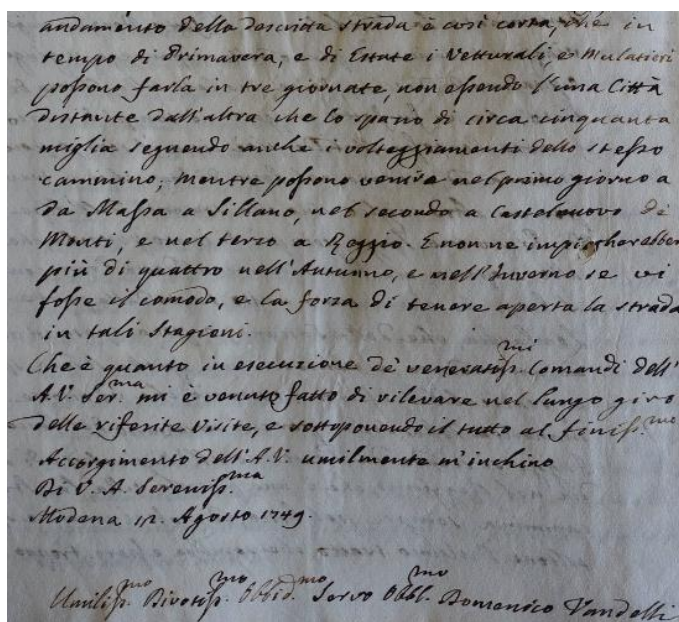 andamento della descritta strada è così corta, che in
tempo di Primavera, e di Estate i Vetturali, e Mulatieri
possono farla in tre giornate, non essendo l'una Città
distante dall'altra che lo spazio di circa cinquanta
miglia seguendo anche i volteggiamenti dello stesso
cammino; mentre possono venire nel primo giorno a
da Massa a Sillano, nel secondo a Castelnuovo de
Monti, e nel terzo a Reggio. E non ne impiegharebber
più di quattro nell'Autunno, e nell'Inverno se vi
fosse il comodo, e la forza di tenere aperta la strada
in tali Stagioni.
Che è quanto in esecuzione de' veneratiss.mi Comandi dell'
A.V. Ser.ma mi è venuto fatto di rilevare nel lungo giro
delle riferite visite, e sottoponendo il tutto al finiss.mo
Accorgimento dell'A.V. umilmente m'inchino
Di V. A. Sereniss.ma
Modena 12. Agosto 1749.
Umiliss.mo Divotiss.mo Obbid.mo Servo Obbl.mo Domenico Vandelli